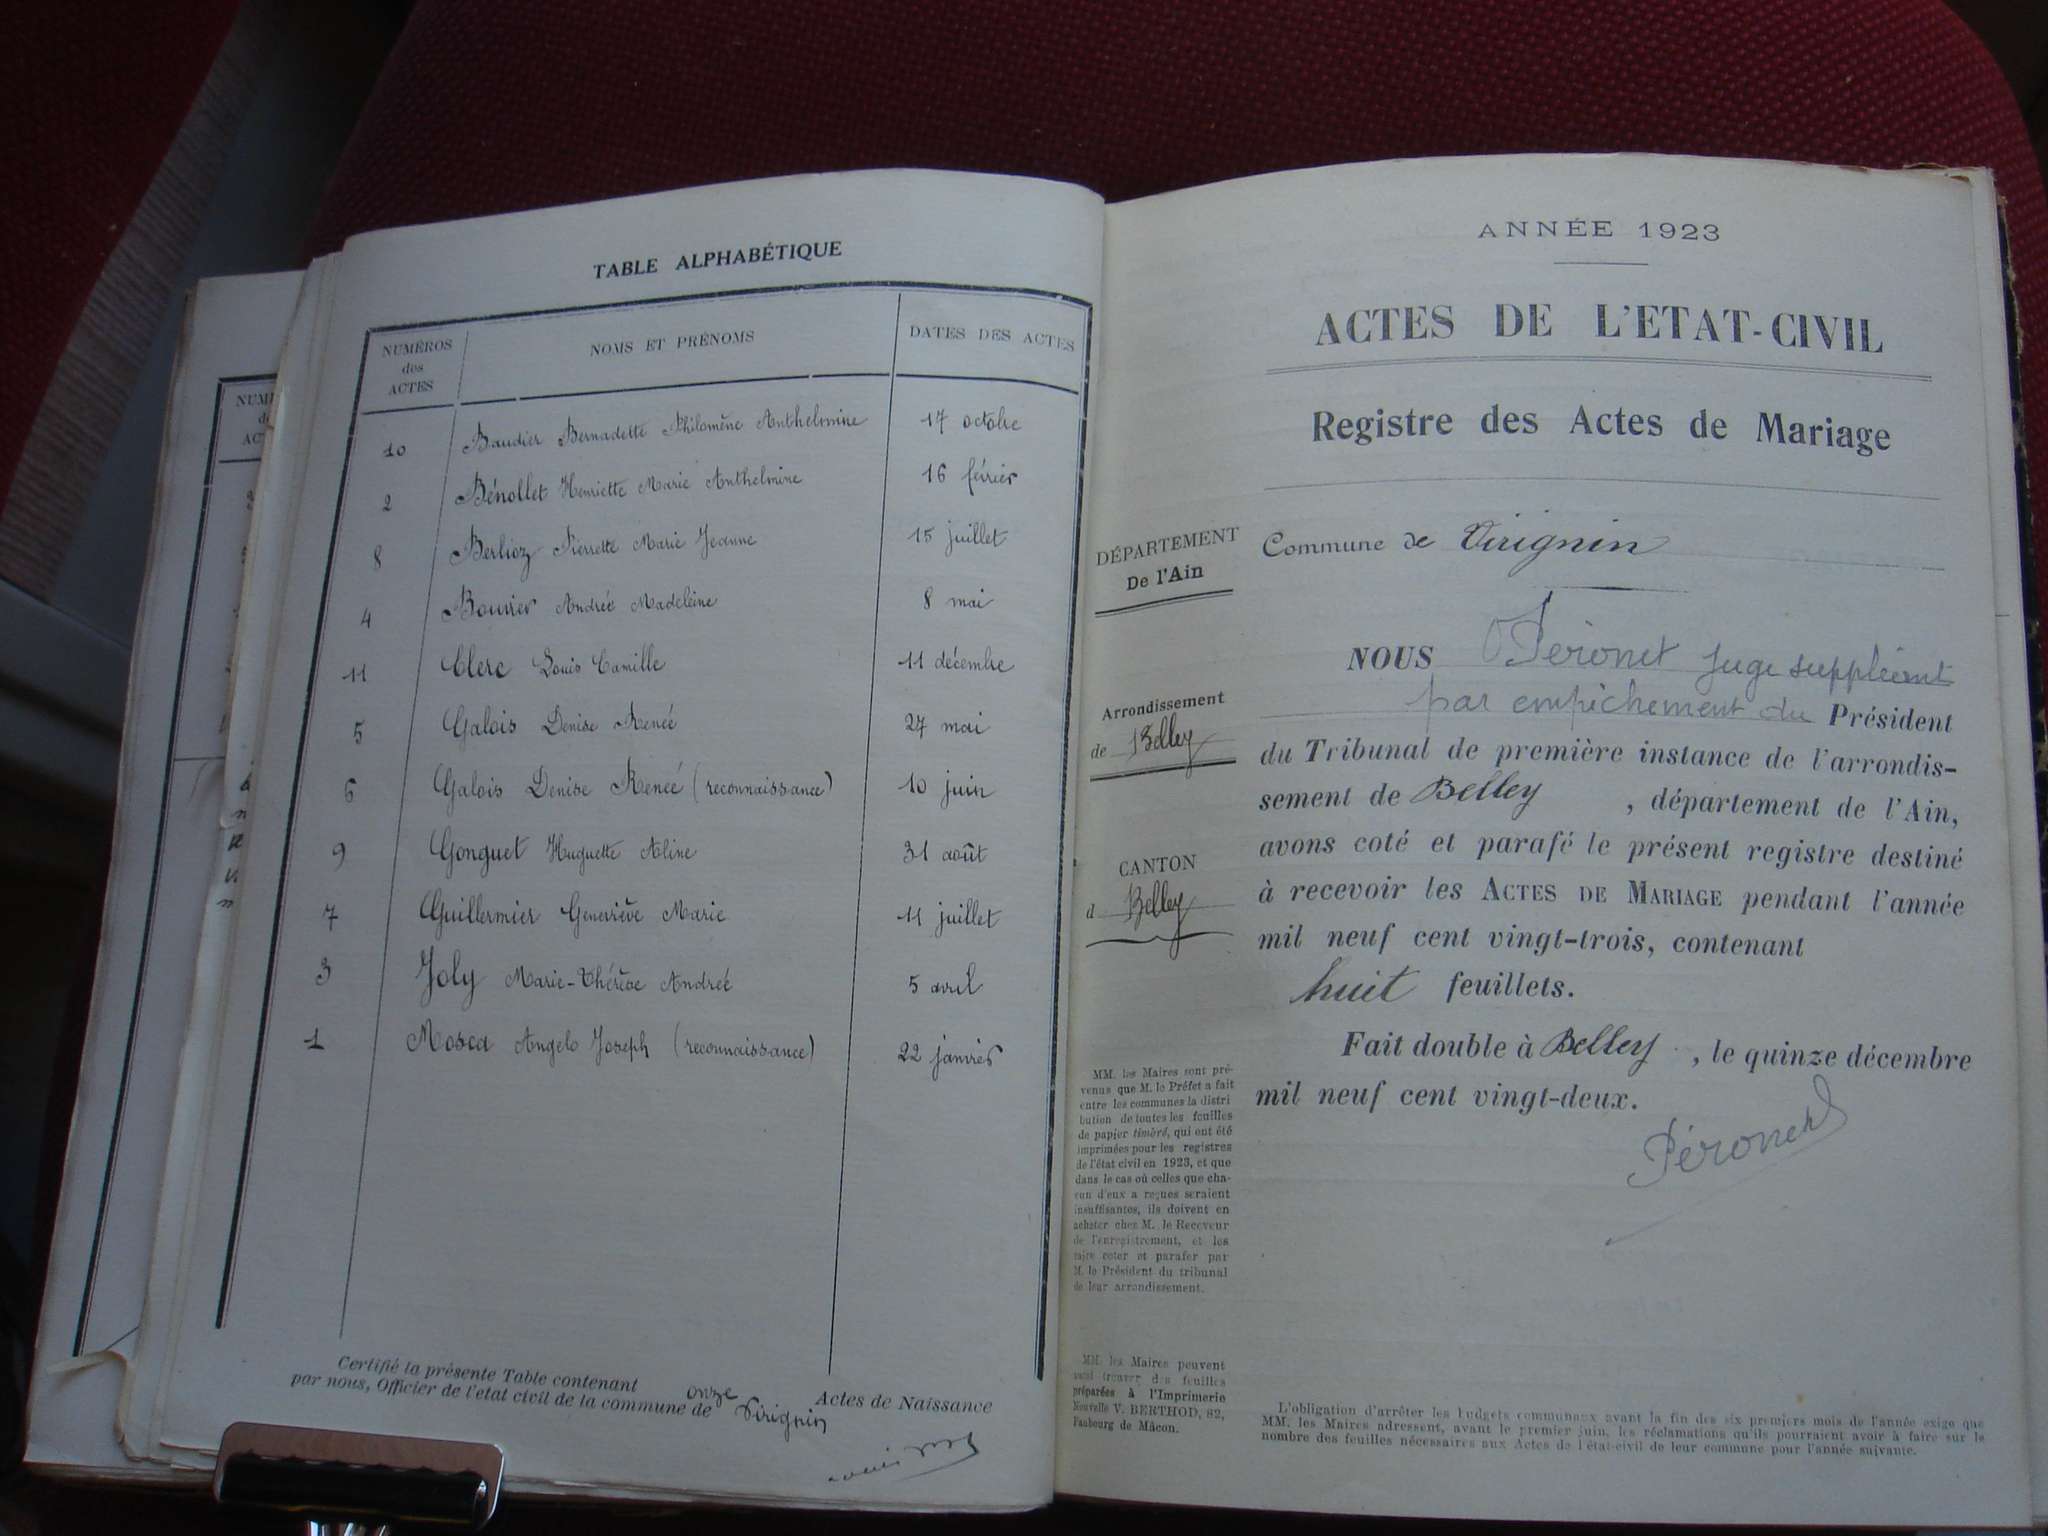 TABLE ALPHABÉTIQUE
NUMÉROS des ACTES NOMS ET PRÉNOMS DATES DES ACTES
10 Baudier Bernadette Philomène Anthelmine 17 octobre
2 Bénollet Henriette Marie Anthelmine 16 février
8 Berlioz Pierrette Marie Jeanne 15 juillet
4 Bouvier Andrée Madeleine 8 mai
11 Clerc Louis Camille 11 décembre
5 Galois Denise Renée 27 mai
6 Galois Denise Renée (reconnaissance) 10 juin
9 Gonguet Huguette Aline 31 août
7 Guillermier Geneviève Marie 11 juillet
3 Joly Marie-Thérèse Andrée 5 avril
1 Mosca Angelo Joseph (reconnaissance) 22 janvier
Certifié la présente Table contenant onze Actes de Naissance
par nous, Officier de l'état civil de la commune de Virignin
ANNÉE 1923
ACTES DE L'ETAT-CIVIL
Registre des Actes de Mariage
DÉPARTEMENT
De l'Ain
Arrondissement
de Belley
CANTON
d Belley
MM. les Maires sont pré-
venus que M. le Préfet a fait
entre les communes la distri
bution de toutes les feuilles
de papier timbré, qui ont été
imprimées pour les registres
de l'état civil en 1923, et que
dans le cas où celles que cha-
cun d'eux a reçues seraient
insuffisantes, ils doivent en
acheter chez M. le Receveur
de l'enregistrement, et les
faire coter et parafer par
M. le Président du tribunal
de leur arrondissement.
MM. les Maires peuvent
aussi trouver des feuilles
préparées à l'Imprimerie
Nouvelle V. BERTHOD, 82,
Faubourg de Mâcon.
Commune de Virignin
NOUS Péronet juge suppléant
par empêchement du Président
du Tribunal de première instance de l'arrondis-
sement de Belley, département de l'Ain,
avons coté et parafé le présent registre destiné
à recevoir les ACTES DE MARIAGE pendant l'année
mil neuf cent vingt-trois, contenant
huit feuillets.
Fait double à Belley, le quinze décembre
mil neuf cent vingt-deux.
Péronet
L'obligation d'arrêter les budgets communaux avant la fin des six premiers mois de l'année exige que
MM. les Maires adressent, avant le premier juin, les réclamations qu'ils pourraient avoir à faire sur le
nombre des feuilles nécessaires aux Actes de l'état-civil de leur commune pour l'année suivante.